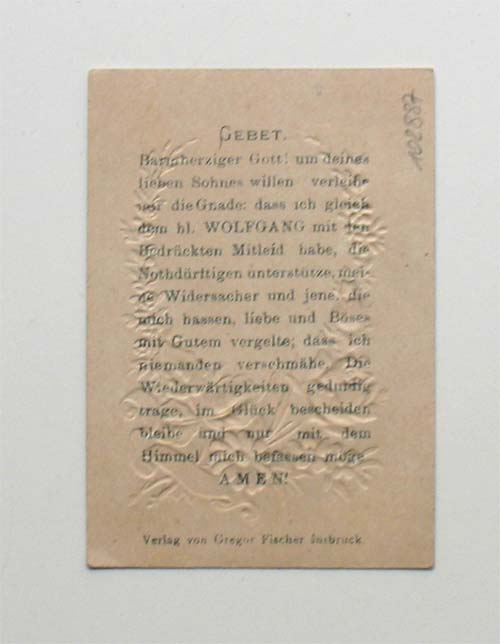 GEBET.
Barmherziger Gott! um deines
lieben Sohnes willen verleihe
mir die Gnade: dass ich gleich
dem hl. WOLFGANG mit den
Bedrückten Mitleid habe, die
Nothdürftigen unterstütze, mei-
ne Widersacher und jene, die
mich hassen, liebe und Böses
mit Gutem vergelte; dass ich
niemanden verschmähe, Die
Wiederwärtigkeiten geduldig
trage, im Glück bescheiden
bleibe und nur mit dem
Himmel mich befassen möge.
AMEN!
Verlag von Gregor Fischer Insbruck.
102887